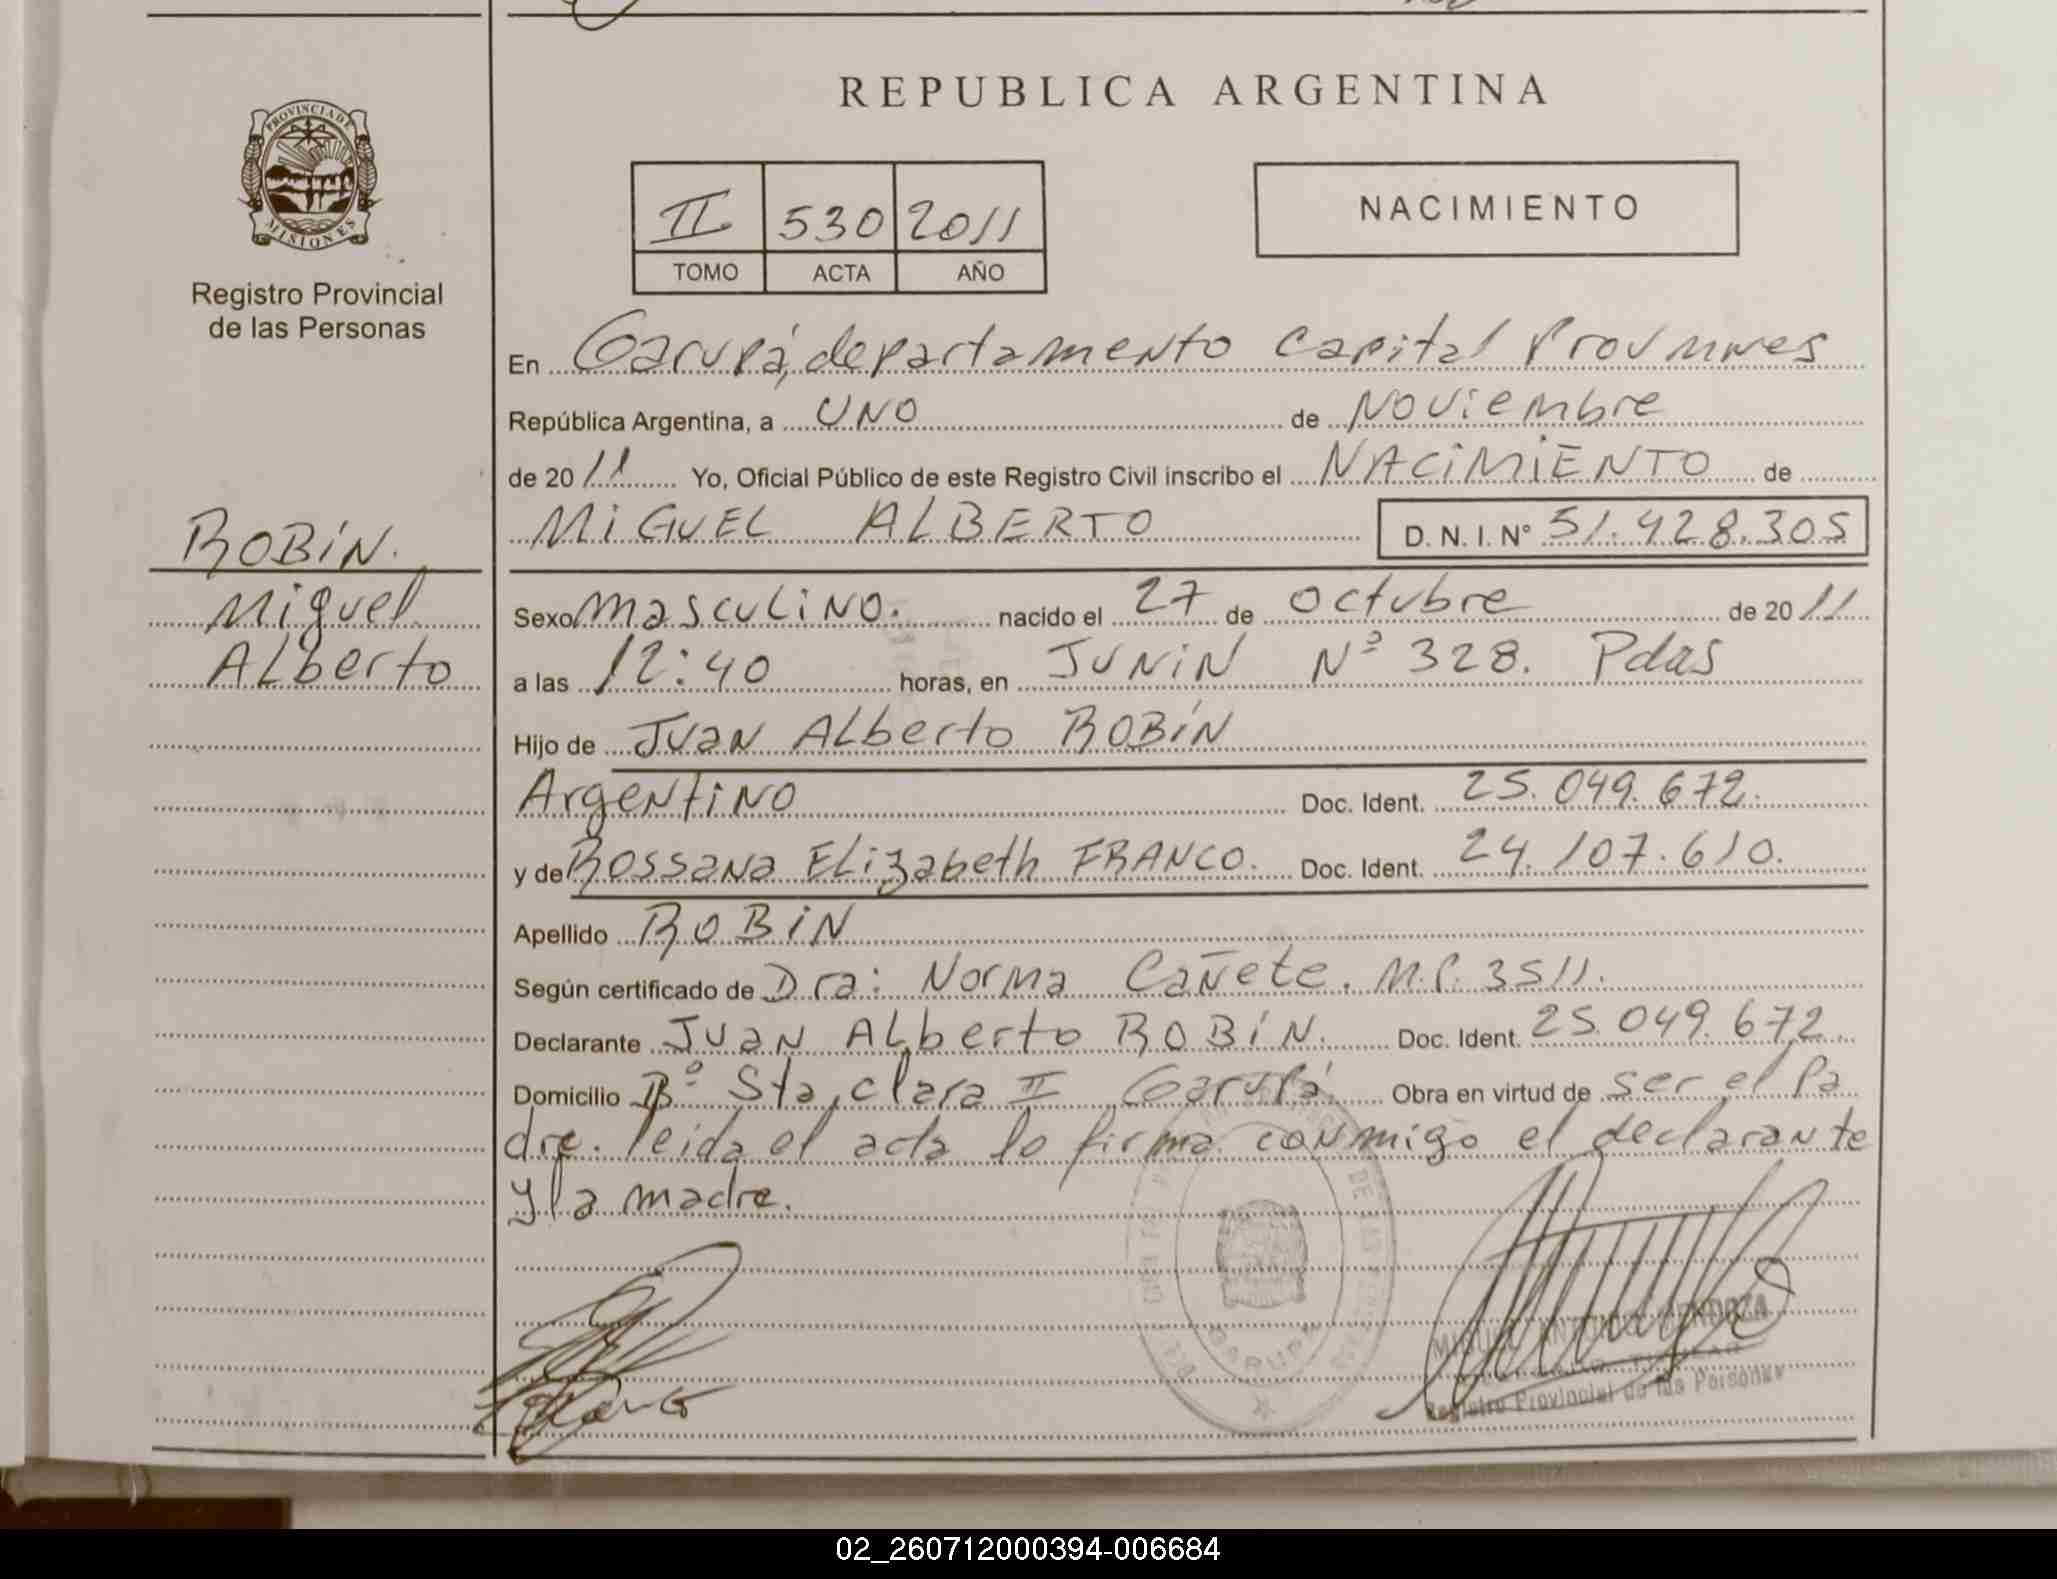 REPUBLICA ARGENTINA
PROVINCIA DE
MISIONES
Registro Provincial
de las Personas
II 530 2011
TOMO ACTA AÑO
NACIMIENTO
En Garupá, departamento Capital Prov Mnes
República Argentina, a UNO de Noviembre
de 2011 Yo, Oficial Público de este Registro Civil inscribo el NACIMIENTO de
MIGUEL ALBERTO D. N. I. N° 51.428.305
ROBíN.
Miguel
ALberto
Sexo masculino. nacido el 27 de octubre de 2011
a las 12:40 horas, en JUNIN Nº 328. Pdas
Hijo de Juan Alberto ROBíN
Argentino Doc. Ident. 25.049.672.
y de Rossana Elizabeth FRANCO. Doc. Ident. 24.107.610.
Apellido ROBiN
Según certificado de Dra: Norma Cañete. M.P. 3511.
Declarante Juan Alberto ROBíN. Doc. Ident. 25.049.672
Domicilio Bº Sta clara II Garupá Obra en virtud de ser el Pa
dre. leida el acta lo firma conmigo el declarante
y la madre.
GARUPA
MIGUEL ANTONIO MENDOZA
Registro Provincial de las Personas
02_260712000394-006684